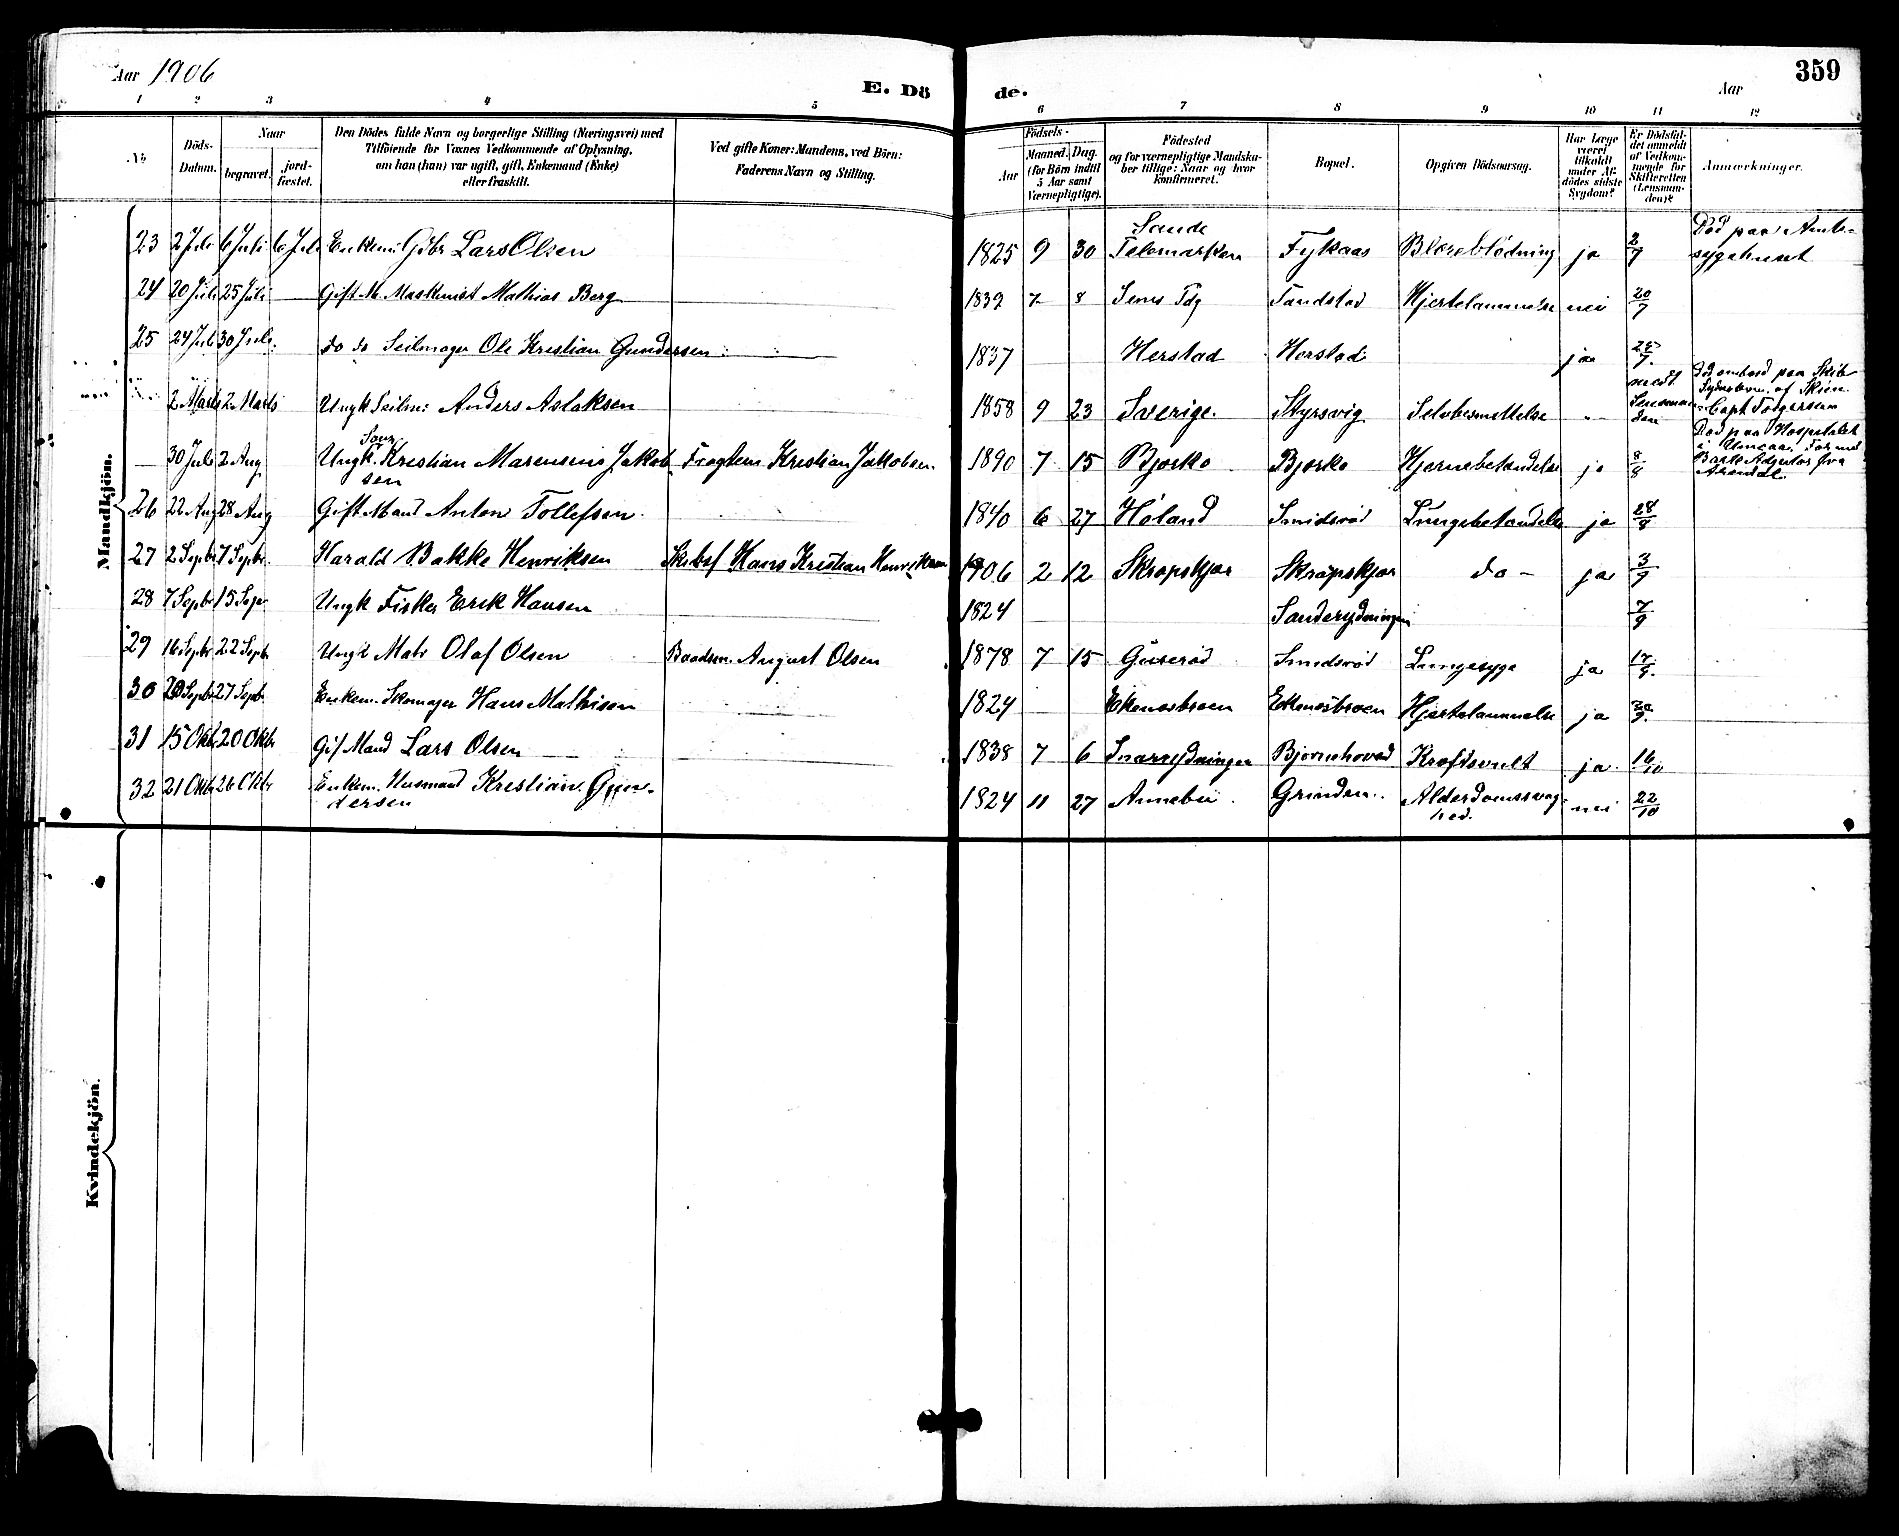 Aar 1906
E. Dö de.
Aar
359
1 2 3 4 5 6 7 8 9 10 11 12
No
Döds-Datum.
Naar
begravet.
jord-fæstet.
Den Dödes fulde Navn og borgerlige Stilling (Næringsvei) med
Tilföiende for Voxnes Vedkommende af Oplysning,
om han (hun) var ugift, gift, Enkemand (Enke)
eller fraskilt.
Ved gifte Koner: Mandens, ved Börn:
Faderens Navn og Stilling.
Födsels-
Aar
Maaned. Dag.
(for Börn indtil
5 Aar samt
Værnepligtige).
Födested
og for værnepligtige Mandska-
ber tillige: Naar og hvor
konfirmeret.
Bopæl.
Opgiven Dödsaarsag.
Har Læge
været
tilkaldt
under Af-
dödes sidste
Sygdom?
Er Dödsfal-
det anmeldt
af Vedkom-
mende for
Skifteretten
(Lensman-
den)?
Anmærkninger.
Mandkjön.
23 2 Juli 6 Juli 6 Juli Enkem: Gdbr Lars Olsen 1825 9 30 Sande Telemarken Fykaas Blæreblödning ja 2/7 Död paa Amts-
sygehuset
24 20 Juli 25 Juli Gift M. Maskinist Mathias Berg 1839 7 8 Sems Fdg Tandstad Hjertelammelse nei 20/7
25 24 Juli 30 Juli do do Seilmager Ole Kristian Gundersen 1837 Herstad Herstad ja 25/7
2 Marts 2 Marts Ungk Seilm: Anders Aslaksen 1858 9 23 Sverige Styrsvig Selvbesmittelse " meldt Lensman-
den Död ombord paa Skib
af Skien
Capt Torgersen
30 Juli 2 Aug Ungk. Kristian Marensius Jakob-
sen Fragtem Kristian Jakobsen 1890 7 15 Bjerkø Bjerkø Hjernebetændelse ja 8/8 Död paa Hospitalet
i Umeaa. For med
Bark Adjutor fra
Arendal.
26 22 Aug 28 Aug Gift Mand Anton Tollefsen 1840 6 27 Høland Smidsrød Lungebetændelse ja 28/8
27 2 Septbr 7 Septbr. Harald Bakke Henriksen Skibsf Hans Kristian Henriksen 1906 2 12 Skrapskjær Skrapskjær do - ja 3/9
28 7 Septbr 15 Sept Ungk Fisker Erik Hansen 1824 Sanderydningen 7/9
29 16 Septbr 22 Septb Ungk Matr Olaf Olsen Baadsm. August Olsen 1878 7 15 Guserød Smidsrød Lungesyge ja 17/9
30 20 Septbr 27 Septbr Enkem. Skomager Hans Mathisen 1824 Ekenesbroen Ekenesbroen Hjertelammelse ja 20/9
31 15 Oktbr 20 Oktbr Gif Mand Lars Olsen 1838 7 6 Snarrydningen Bjørnehoved Kræftsvulst ja 16/10
32 21 Oktbr 26 Oktbr Enkem. Husmand Kristian Gun-
dersen 1824 11 27 Annebu Grinden Alderdomssvag-
hed. nei 22/10
Kvindekjön.